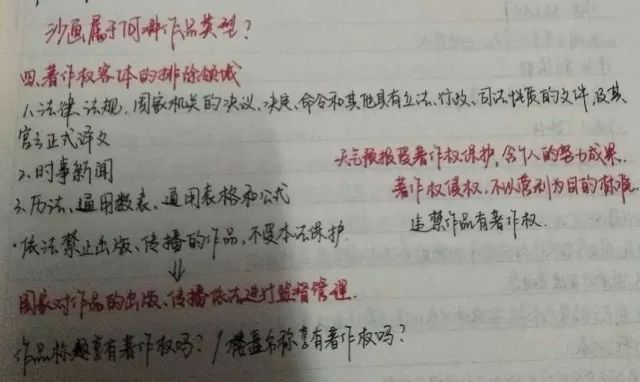 沙画属于何种作品类型？
四.著作权客体的排除领域
1.法律.法规.国家机关的决议、决定、命令和其他具有立法、行政、司法性质的文件,及其
官方正式译文
2.时事新闻
天气预报受著作权保护,含个人的努力成果.
3.历法、通用数表、通用表格和公式
著作权侵权,不以营利为目的标准.
违禁作品有著作权.
·依法禁止出版、传播的作品,不受本法保护.
⇓
国家对作品的出版、传播依法进行监督管理.
作品标题享有著作权吗？/楼盘名称享有著作权吗？